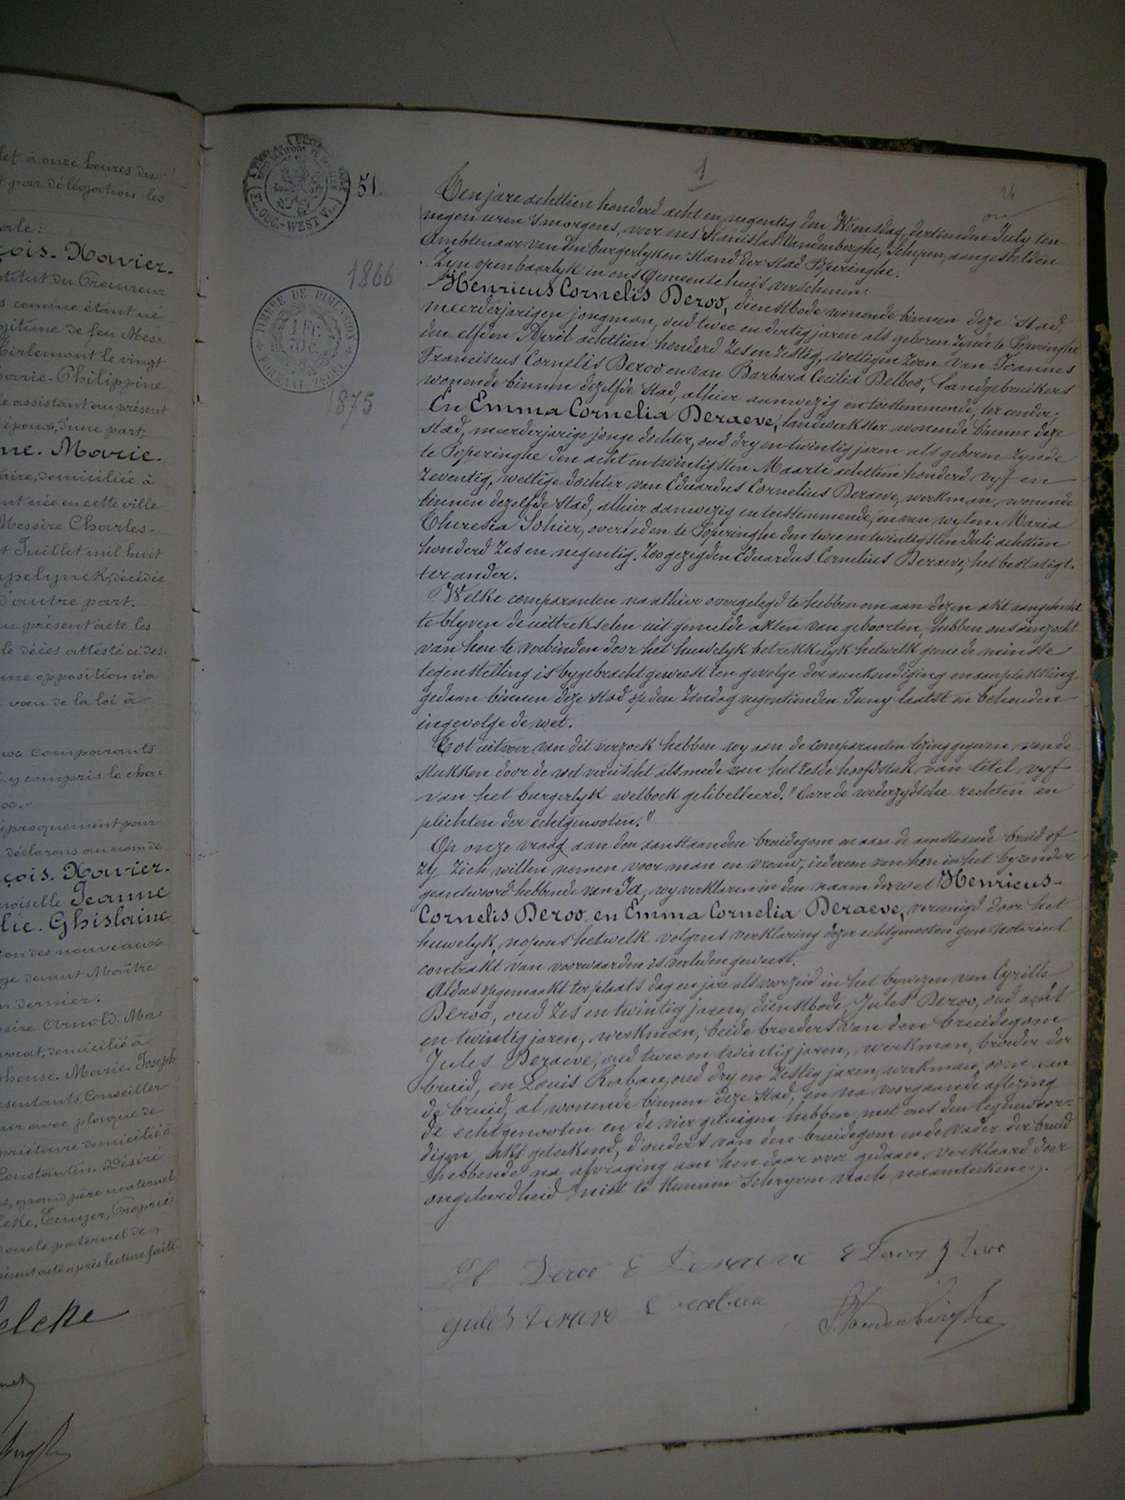 let à onze heures du
t par délégation les
çois-Xavier-
stitut du Procureur
s comme étant né
gitime de feu Mes-
Tirlemont le vingt
Marie-Philippine
le assistant au présent
époux, d'une part,
ne. Marie.
aire, domiciliée à
nt née en cette ville
Messire Charles-
t Juillet mil huit
décédée
D'autre part.
au présent acte les
le décès attesté ci des-
une opposition n'a
vœu de la loi à
comparants
y compris le cha-
déclarons au nom de
çois. Xavier.
moiselle Jeanne
lie. Ghislaine
ge devant Maître
n dernier.
vocat, domicilié à
Marie. Joseph
sentants, Conseiller
ir avec plaque de
priétaire domicilié à
Constantin Désiré
grand père maternel
oncle paternel de
sent acte après lecture faite
1
24
51.
1866
TIMBRE DE DIMENSION
1 FC.
1875
Ten jare achttien honderd acht en negentig den Woensdag, dertienden July ten
negen uren 's morgens, voor ons Stanislas Vandenberghe, Schepen, aangestelden
Ambtenaar van den burgerlyken Stand der stad Poperinghe.
Zyn openbaarlyk in ons Gemeentehuis verschenen:
Henricus Cornelis Deroo, dienstbode wonende binnen deze stad,
meerderjarigen jongman, oud twee en dertig jaren als geboren zynde te Poperinghe
den elfden April achttien honderd zes en zestig, wettigen zoon van Joannes
Franciscus Cornelis Deroo en van Barbara Cecilia Delboo, landgebruikers
wonende binnen dezelfde stad, alhier aanwezig en toestemmende, ter eender;
En Emma Cornelia Deraeve, landwerkster wonende binnen deze
stad, meerderjarige jonge dochter, oud dry en twintig jaren als geboren zynde
te Poperinghe den acht en twintigsten Maarte achttien honderd vyf en
zeventig, wettige dochter van Eduardus Cornelius Deraeve, werkman, wonende
binnen dezelfde stad, alhier aanwezig en toestemmende, en van wylen Maria
Theresia Sohier, overleden te Poperinghe den twee en twintigsten Juli achttien
honderd zes en negentig. Zoogezegden Eduardus Cornelius Deraeve, het bestatigt.
ter ander.
Welke comparanten na alhier overgelegd te hebben om aan dezen akt aangehecht
te blyven de uittrekselen uit gemelde akten van geboorten, hebben ons aanzocht
van hen te verbinden door het huwelyk betrekkelyk hetwelk geene de minste
tegenstelling is bygebracht geweest ten gevolge der aankondiging en aanplakking
gedaan binnen deze stad op den Zondag negentienden Juny laatst en behouden
ingevolge de wet.
Tot uitvoer van dit verzoek hebben wy aan de comparanten lezing gegeven van de
stukken door de wet vereischt alsmede van het zesde hoofdstuk van titel vyf
van het burgerlyk wetboek gelibelleerd. "Over de wederzydsche rechten en
plichten der echtgenooten."
Op onze vraag aan den aanstaanden bruidegom en aan de aanstaande bruid of
zy zich willen nemen voor man en vrouw, iedereen van hen in het byzonder
geantwoord hebbende van Ja, wy verklaren in den naam der wet Henricus-
Cornelis Deroo en Emma Cornelia Deraeve, vereenigd door het
huwelyk, nopens hetwelk volgens verklaring dezer echtgenooten geen Notarieel
contrakt van voorwaarden is verleden geweest.
Aldus opgemaakt ter plaats dag en jare als voorzeid in het bywezen van Cyrille
Deroo, oud zes en twintig jaren, dienstbode, Jules Deroo, oud acht
en twintig jaren, werkman, beide broeders van den bruidegom
Jules Deraeve, oud twee en twintig jaren, werkman, broeder der
bruid, en Louis oud dry en zestig jaren, werkman, oom van
de bruid, al wonende binnen deze stad, en na voorgaande aflezing
de echtgenooten en de vier getuigen hebben met ons den tegenwoor-
digen akt geteekend, d'ouders van den bruidegom en de vader der bruid
hebbende na afvraging aan hen daar over gedaan, verklaard door
ongeleerdheid niet te kunnen schryven noch naamteekenen.
Deroo E Deraeve C Deroo J Deroo
Jules Deraeve
S. Vandenberghe